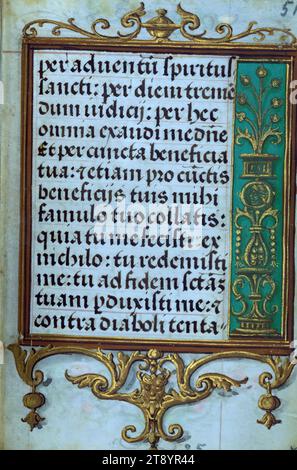 per adventũ spiritus
sancti: per diem treme
dum iudicij: per hec
omnia exaudi me dñe
Et per cuncta beneficia
tua: et etiam pro cũctis
beneficijs tuis mihi
famulo tuo collatis:
quia tu me fecisti ex
nichilo: tu redemisti
me: tu ad fidem sctãz
tuam pduxisti me: et
contra diaboli tenta-
alamy
Image ID: 2T8YR44
www.alamy.com